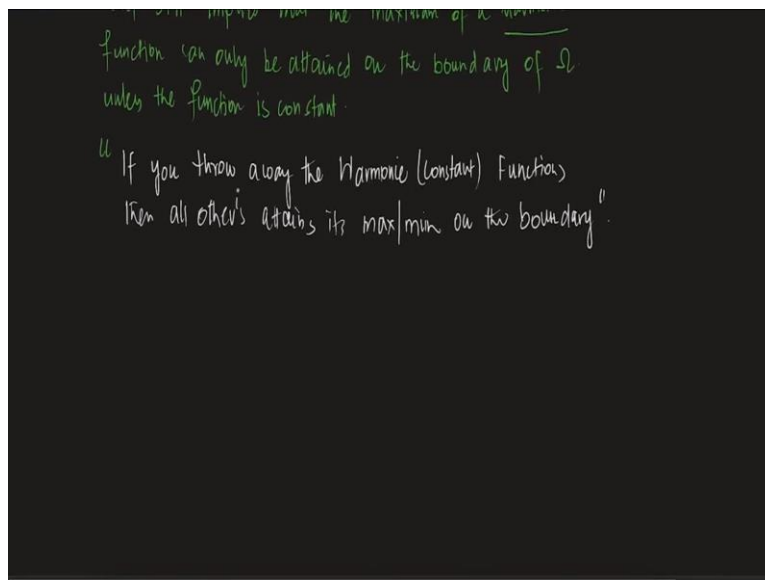 the maximum of a
function can only be attained on the boundary of Ω.
unless the function is constant.
"If you throw away the Harmonic (constant) Functions
then all other's attains its max/min on the boundary".